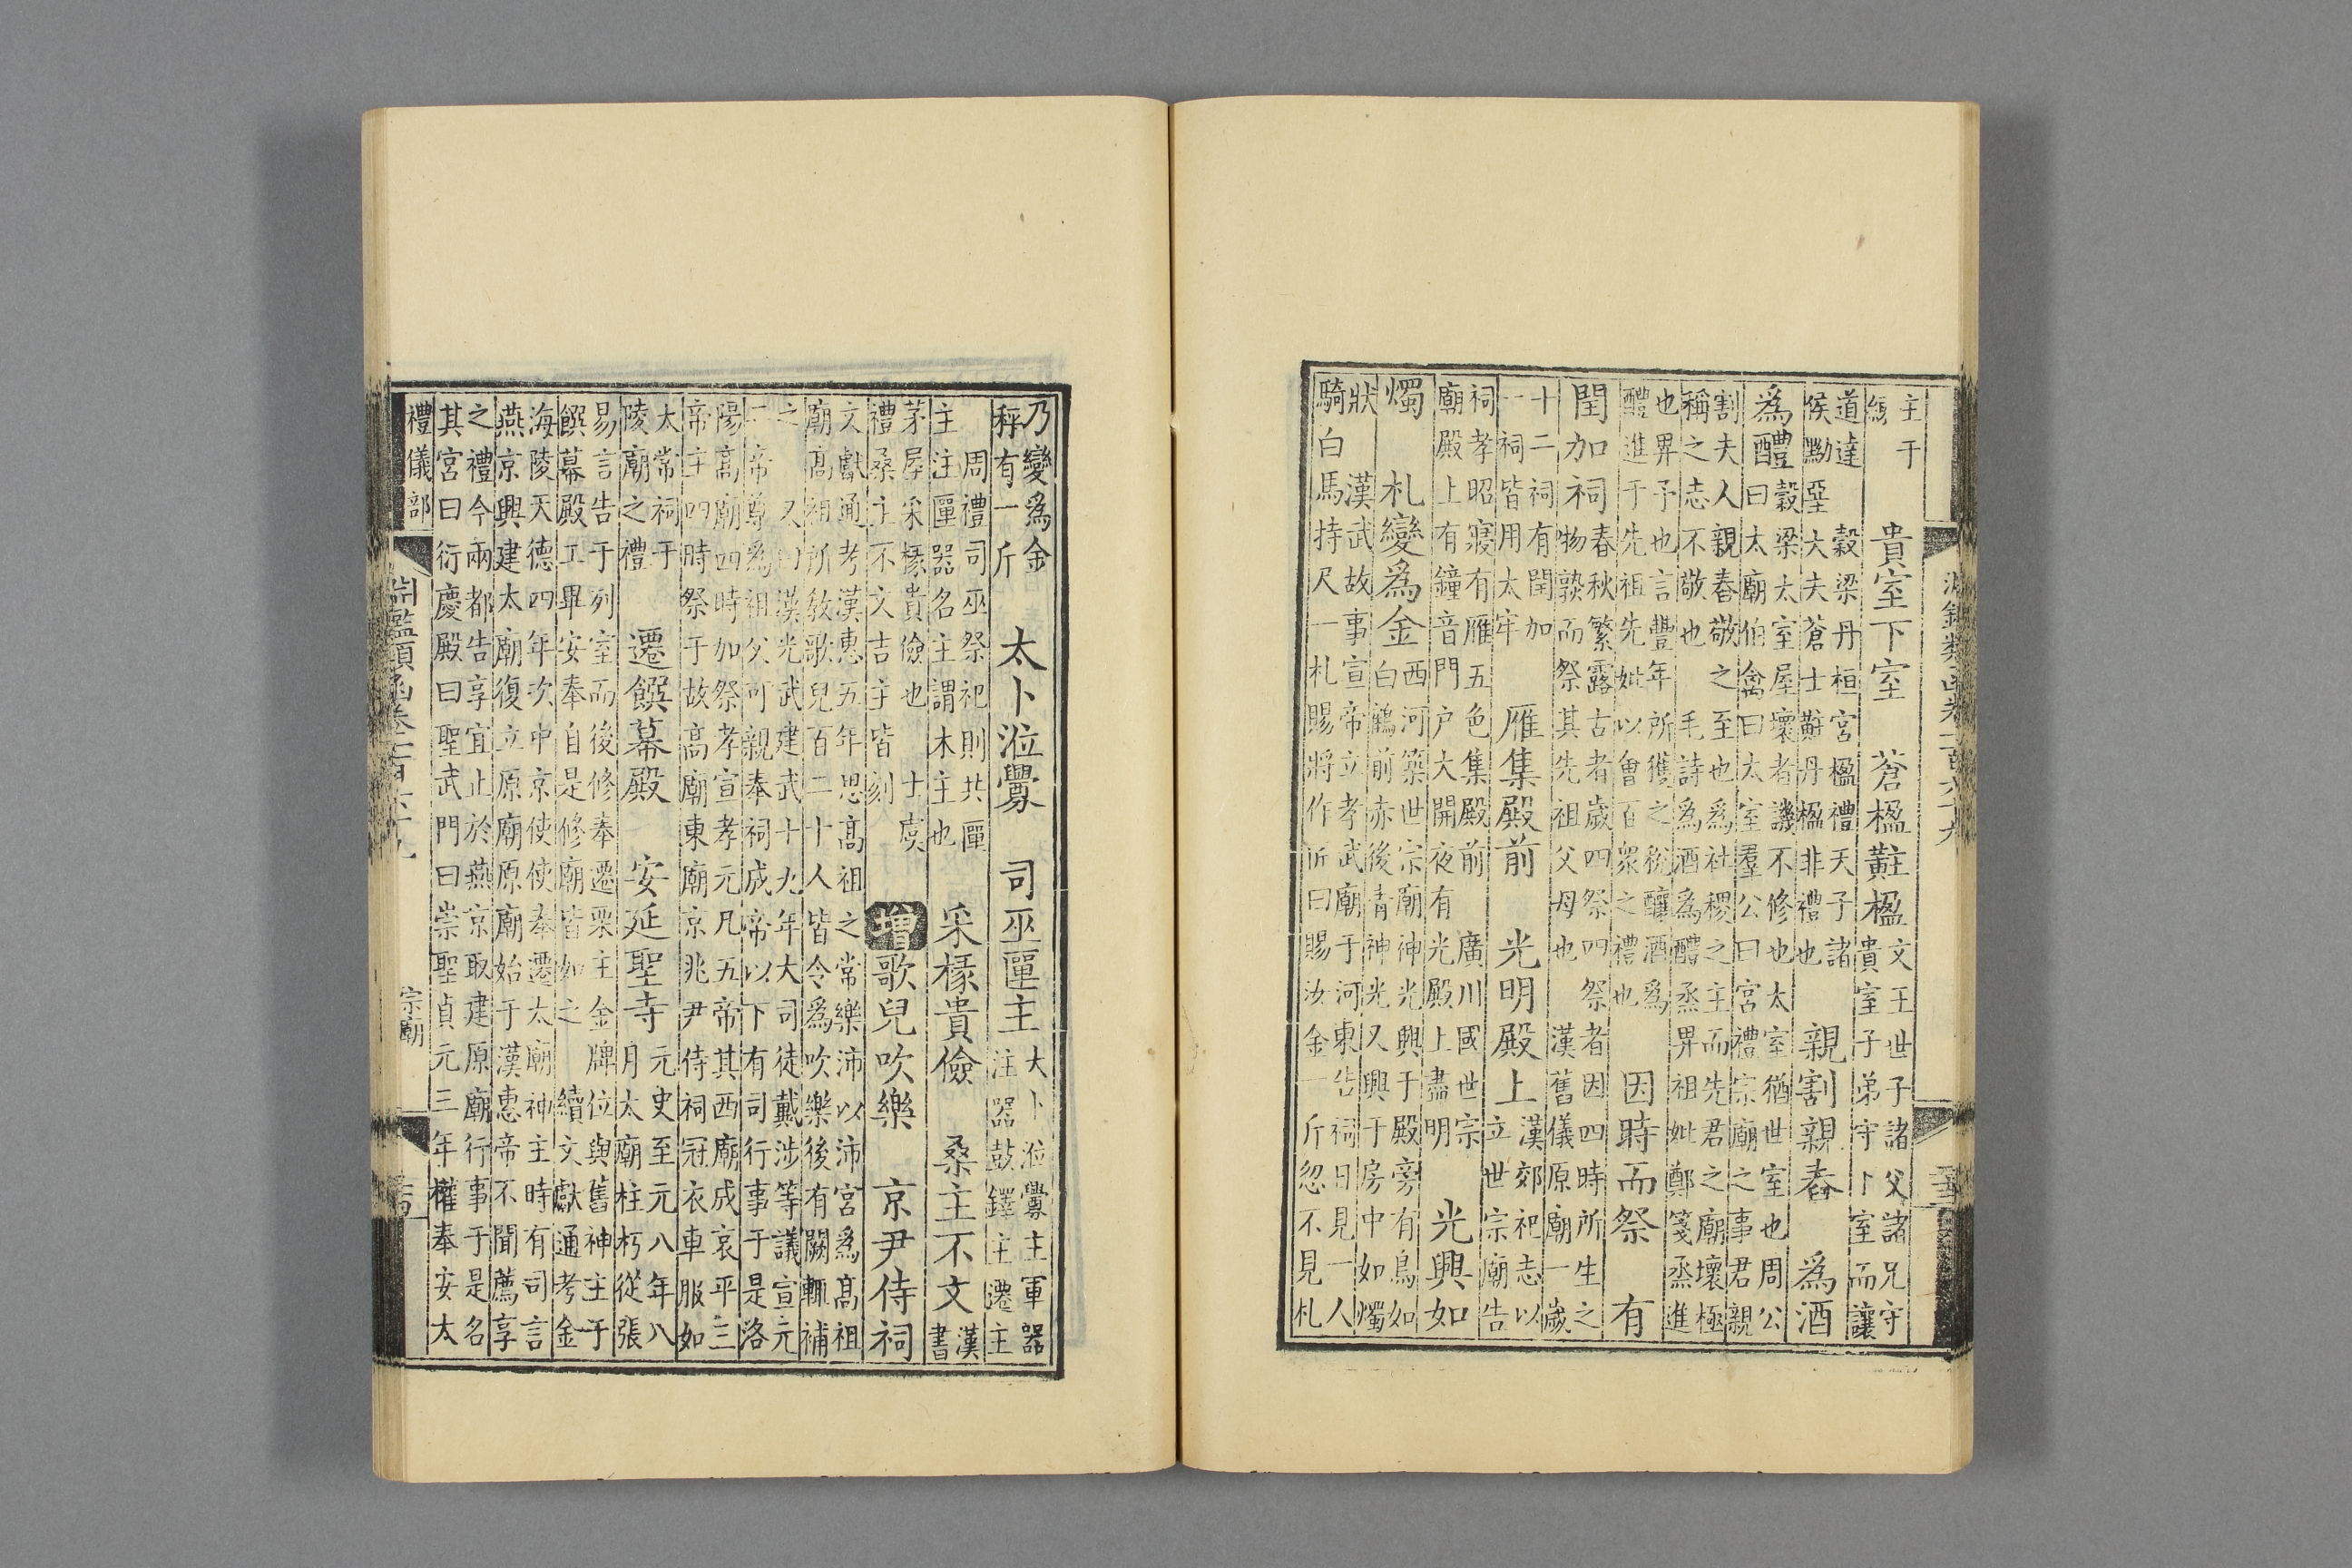 主于
貴室下室 蒼楹黈楹
文王世子諸父諸兄守
貴室子弟守下室而讓
道達
穀梁丹桓宮楹禮天子諸
侯黝堊大夫蒼士黈丹楹非禮也
親割親舂 為酒
為醴
穀梁太室屋壞者譏不修也太室猶世室也周公
曰太廟伯禽曰太室羣公曰宮禮宗廟之事君親
割夫人親舂敬之至也為社稷之主而先君之廟壞極
稱之志不敬也 毛詩為酒為醴烝畀祖妣鄭箋烝進
也畀予也言豐年所獲之稅釀酒為
醴進于先祖先妣以會百衆之禮也
因時而祭 有
閏加祠
春秋繁露古者歲四祭四祭者因四時所生之
物孰而祭其先祖父母也 漢舊儀原廟一歲
十二祠有閏加
一祠皆用太牢
雁集殿前 光明殿上
漢郊祀志以
立世宗廟告
祠孝昭寢有雁五色集殿前 廣川國世宗
廟殿上有鐘音門户大開夜有光殿上盡明
光興如
燭 札變為金
西河築世宗廟神光興于殿旁有鳥如
白鶴前赤後青神光又興于房中如燭
狀 漢武故事宣帝立孝武廟于河東告祠日見一人
騎白馬持尺一札賜將作所曰賜汝金一斤忽不見札
乃變爲金
稱有一斤
太卜涖釁 司巫匰主
大卜涖釁主軍器
注器鼓鐸主遷主
周禮司巫祭祀則共匰
主注匰器名主謂木主也
采椽貴儉 桑主不文
漢
書
茅屋采椽貴儉也 士虞
禮桑主不文吉主皆刻
增 歌兒吹樂 京尹侍祠
文獻通考漢惠五年思高祖之常樂沛以沛宮爲高祖
廟高祖所敎歌兒百二十人皆令爲吹樂後有闕輒補
之 又曰漢光武建武十九年大司徒戴涉等議宣元
二帝尊爲祖父可親奉祠成帝以下有司行事于是洛
陽高廟四時加祭孝宣孝元凡五帝其西廟成哀平三
帝主四時祭于故高廟東廟京兆尹侍祠冠衣車服如
太常祠于
陵廟之禮
遷饌幕殿 安延聖寺
元史至元八年八
月太廟柱朽從張
易言告于列室而後修奉遷栗主金牌位與舊神主于
饌幕殿工畢安奉自是修廟皆如之 續文獻通考金
海陵天德四年次中京使使奉遷太廟神主時有司言
燕京興建太廟復立原廟原廟始于漢惠帝不聞薦享
之禮今兩都告享宜止於燕京取建原廟行事于是名
其宮曰衍慶殿曰聖武門曰崇聖貞元三年權奉安太
禮儀部
宗廟